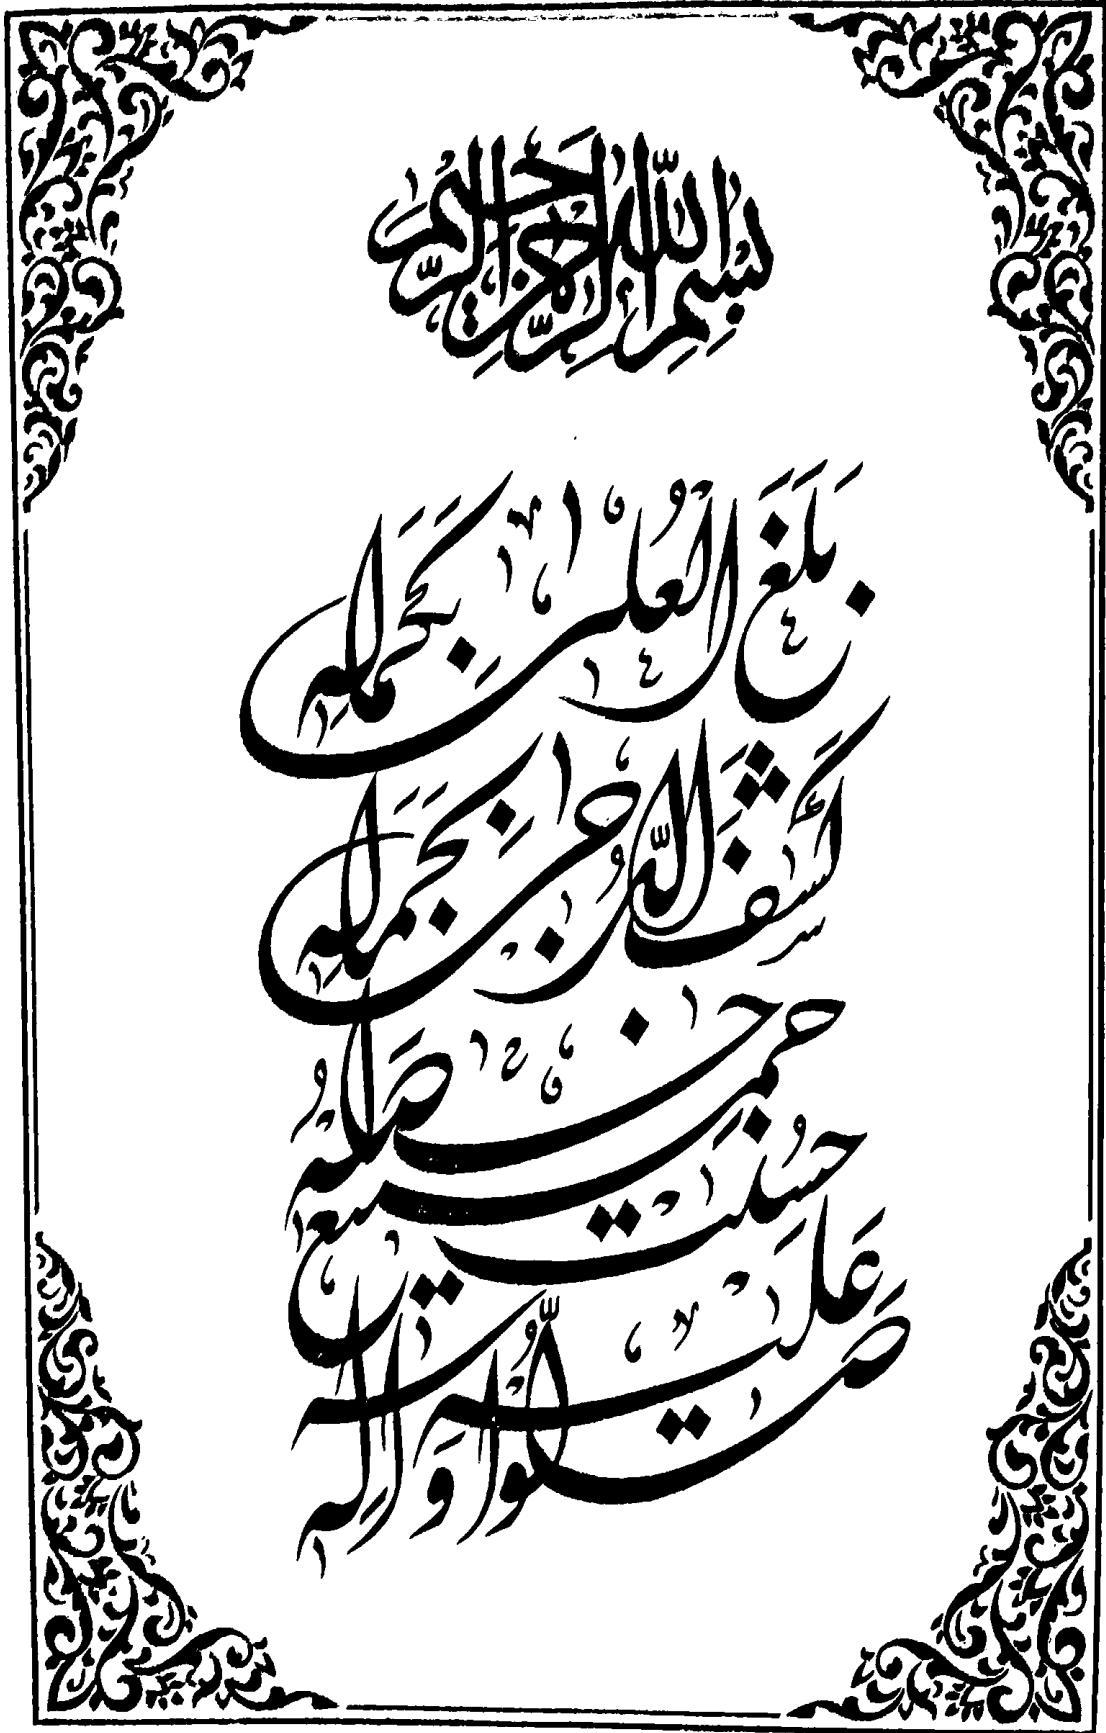 بِسْمِ اللّٰهِ الرَّحْمٰنِ الرَّحِيْمِ
بَلَغَ الْعُلٰى بِكَمَالِهٖ
كَشَفَ الدُّجٰى بِجَمَالِهٖ
حَسُنَتْ جَمِيْعُ خِصَالِهٖ
صَلُّوْا عَلَيْهِ وَاٰلِهٖ